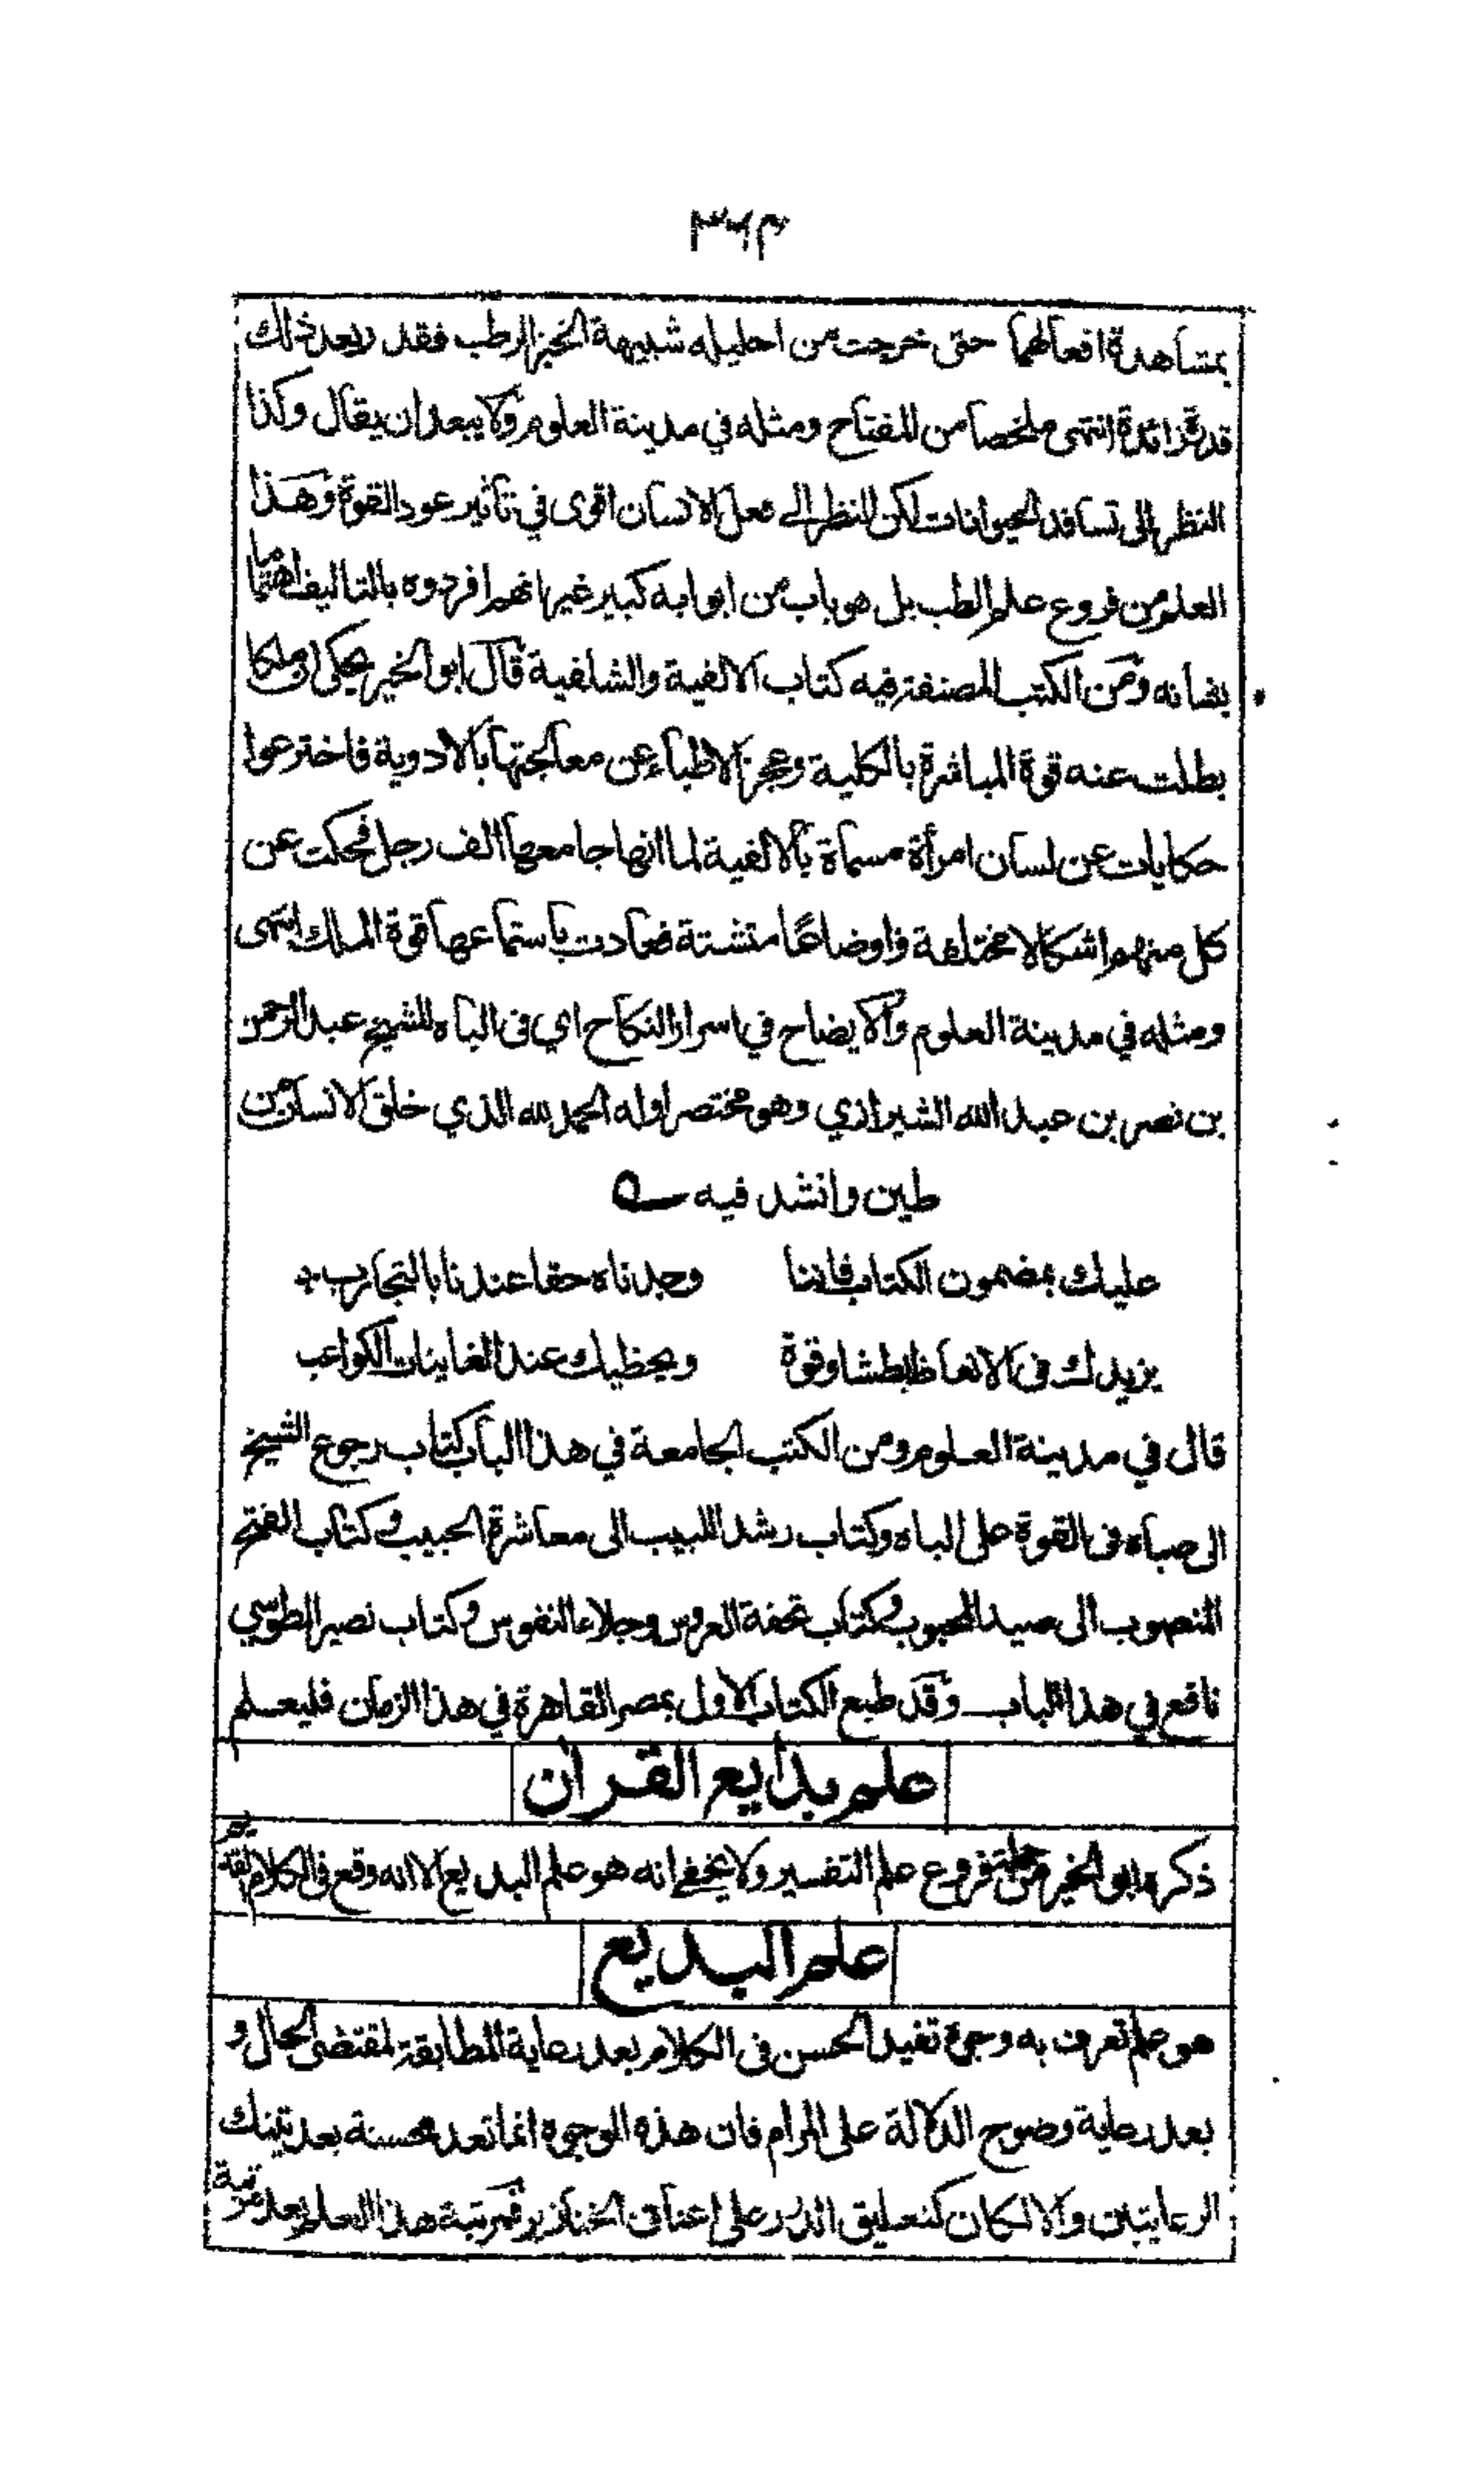 ٣٦٣
بمشاهدة افعالهما حتى خرجت من احليله شبيهة الخبز الرطب فقدر بعد ذلك
قدرة زائدة انتهى ملخصا من المفتاح ومثله في مدينة العلوم ولا يبعد ان يقال وكذا
النظر الى تسافد الحيوانات لكن النظر الى فعل الانسان اقوى في تأثير عود القوة وهذا
العلم من فروع علم الطب بل هو باب من ابوابه كبير غير انهم افردوه بالتاليف اهتماما
بشانه ومن الكتب المصنفة فيه كتاب الالفية والشلفية قال ابو الخير يحكى ان ملكا
بطلت عنه قوة المباشرة بالكلية وعجز الاطباء عن معالجتها بالادوية فاخترعوا
حكايات عن لسان امرأة مسماة بالالفية لما انها جامعها الف رجل فحكت عن
كل منهم اشكالا مختلفة واوضاعًا متشتة فعادت باستماعها قوة الملك انتهى
ومثله في مدينة العلوم والايضاح في اسرار النكاح اي فى الباه للشيخ عبد الرحمن
بن نصر بن عبد الله الشيرازي وهو مختصر اوله الحمد لله الذي خلق الانسان من
طين وانشد فيه
عليك بمضمون الكتاب فاننا وجدناه حقا عندنا بالتجارب
يزيدك فى الانعاظ بطشا وقوة ويحظيك عند الغانيات الكواعب
قال في مدينة العلوم ومن الكتب الجامعة في هذا الباب كتاب رجوع الشيخ
الى صباه فى القوة على الباه وكتاب رشد اللبيب الى معاشرة الحبيب وكتاب الفتح
المنصوب الى صيد المحبوب وكتاب تحفة العروس وجلاء النفوس وكتاب نصير الطوسي
نافع في هذا الباب وقد طبع الكتاب الاول بمصر القاهرة في هذا الزمان فليعلم
علم بدايع القران
ذكره ابو الخير من جملة فروع علم التفسير ولا يخفى انه هو علم البديع الا انه وقع فى الكلام القديم
علم البديع
هو علم تعرف به وجوه تفيد الحسن فى الكلام بعد رعاية المطابقة لمقتضى الحال و
بعد رعاية وضوح الدلالة على المرام فان هذه الوجوه انما تعد محسنة بعد تينك
الرعايتين والا لكان كتعليق الدرر على اعناق الخنازير فمرتبة هذا العلم بعد مرتبة